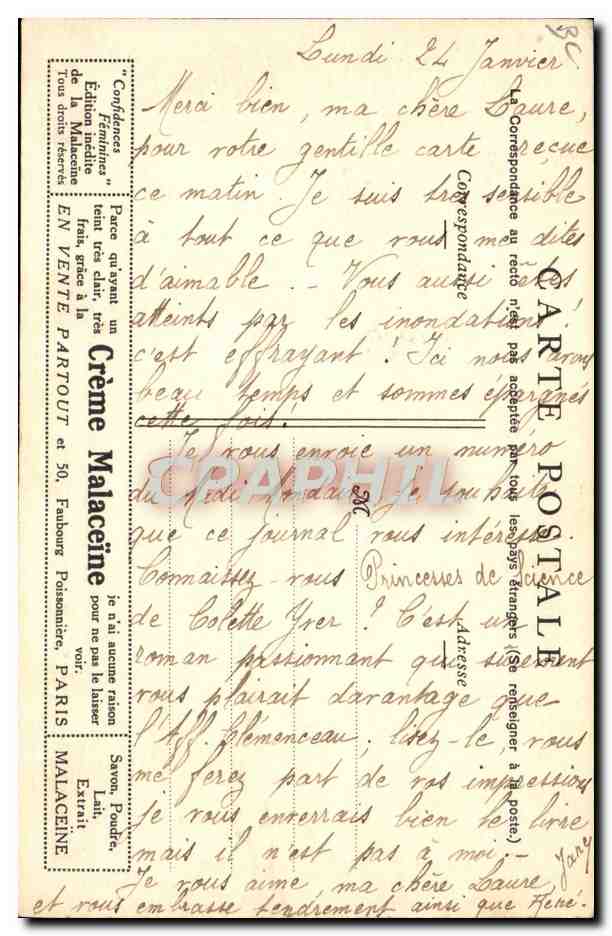 BC
Lundi 24 Janvier
Merci bien, ma chère Laure,
pour votre gentille carte reçue
ce matin. Je suis très sensible
à tout ce que vous me dites
d'aimable. - Vous aussi êtes
atteints par les inondations!
c'est effrayant! Ici nous avons
beau temps et sommes épargnés
cette fois!
Je vous envoie un numéro
du Midi Mondain, je souhaite
que ce journal vous intéresse.
Connaissez-vous Princesses de Science
de Colette Yver? C'est un
roman passionnant qui sûrement
vous plairait davantage que
l'Aff. Clémenceau; lisez-le, vous
me ferez part de vos impressions
je vous enverrais bien le livre
mais il n'est pas à moi. -
Je vous aime, ma chère Laure,
et vous embrasse tendrement ainsi que René.
Jane
CARTE POSTALE
La Correspondance au recto n'est pas acceptée par tous les pays étrangers (Se renseigner à la poste.)
Correspondance
Adresse
M
CPAPHIL
"Confidences
Féminines"
Édition inédite
de la Malaceïne
Tous droits réservés
Parce qu'ayant un
teint très clair, très
frais, grâce à la
Crème Malaceïne
je n'ai aucune raison
pour ne pas le laisser
voir.
EN VENTE PARTOUT et 50, Faubourg Poissonnière, PARIS
Savon, Poudre,
Lait,
Extrait
MALACEÏNE